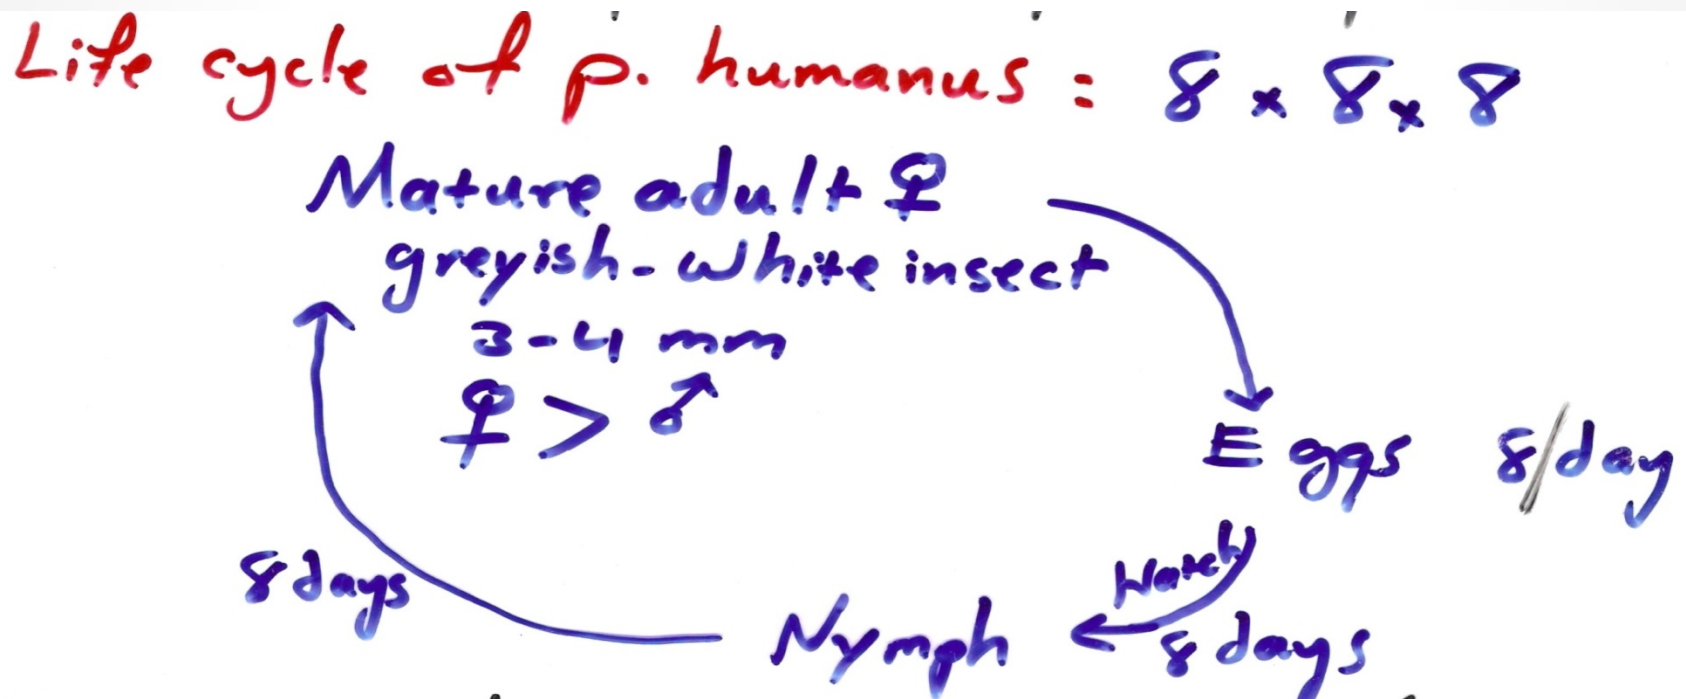 Life cycle of p. humanus : 8 x 8 x 8
Mature adult ♀
greyish-white insect
3-4 mm
♀ > ♂
Eggs 8/day
Hatch
8 days
Nymph
8 days